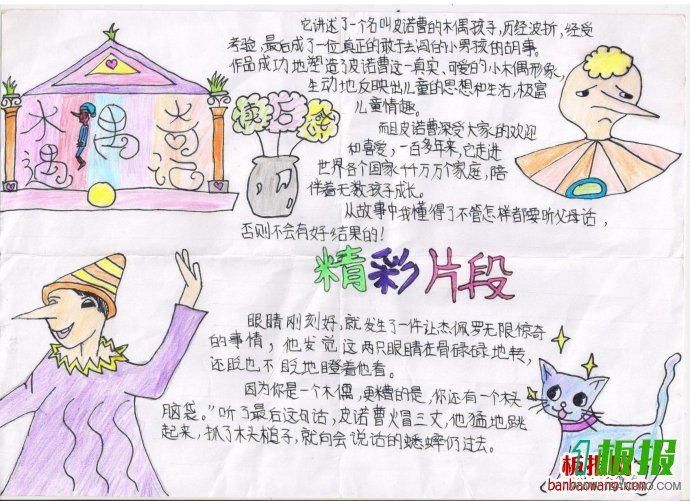 木偶奇遇记
读后感
它讲述了一个名叫皮诺曹的木偶孩子,历经波折,经受
考验,最后成了一位真正的敢于去闯的小男孩的故事。
作品成功地塑造了皮诺曹这一真实、可爱的小木偶形象,
生动地反映出儿童的思想和生活,极富
儿童情趣。
而且皮诺曹深受大家的欢迎
和喜爱,一百多年来,它走进
世界各个国家千万万个家庭,陪
伴着无数孩子成长。
从故事中我懂得了不管怎样都要听父母话,
否则不会有好结果的!
精彩片段
眼睛刚刻好,就发生了一件让杰佩罗无限惊奇
的事情,他发觉这两只眼睛在骨碌碌地转,
还眨也不眨地瞪着他看。
因为你是一个木偶,更糟的是,你还有一个木头
脑袋。”听了最后这句话,皮诺曹火冒三丈,他猛地跳
起来,抓了木头槌子,就向会说话的蟋蟀仍过去。
板报
板报网
banbaowang.com